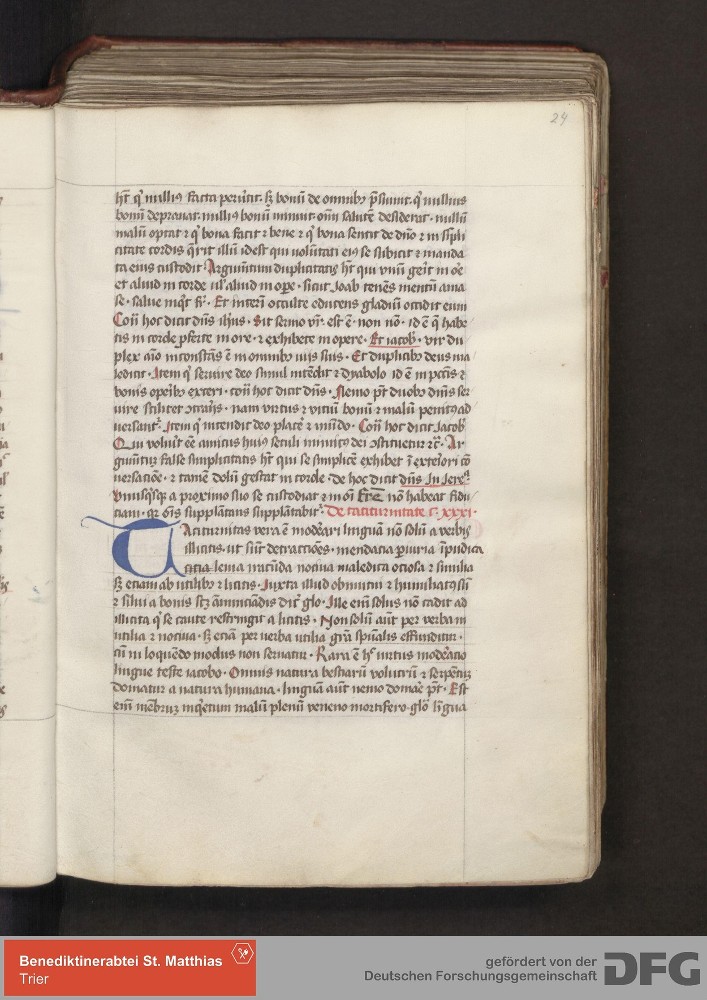 24
hr̄ q' nulliꝯ facta ꝑuertit. sꝫ bonū de omnibꝫ p̄sumit. q' nullius
bonū deprauat. nulliꝯ bonū minuit. om̄i salutē desiderat. nullū
malū optat ⁊ q' bona facit ⁊ bene ⁊ q' bona sentit de dn̄o ⁊ in simpli
citate cordis q̄rit illū idest qui volūtati eiꝯ se subicit ⁊ manda
ta eius custodit Argumētum duplicitatis hr̄ qui vnū gerit in oē
et aliud in corde ul' aliud in oꝑe. sicut Joab tenēs mentū ama
se. salue mq̇t fr̄. Et interī occulte educens gladiū occidit eum
Con̄ hoc dicit dn̄s ihūs. Sit sermo vr̄. est ē. non nō. id ē q̄ habe
tis in corde ꝓferte in ore. ⁊ exhibete in opere. Et iacob'. vir du
plex aīo inconstās ē in omnibꝫ uijs suis. Et duplicibꝫ deus ma
ledicit. Item q' simul intēdit ⁊ dyabolo id ē in pctīs ⁊
bonis oꝑibꝫ exteri. con̄ hoc dicit dn̄s. Nemo pt̄ duobꝫ dn̄is ser
uire scilicet ꝯtrarijs. nam virtus ⁊ vitiū bonū ⁊ malū penitꝯ ad
uersant'. Item q' intendit deo placē ⁊ mūdo. Con̄ hoc dicit Jacob'
Qui voluit eē amicus huiꝯ seculi inimicꝯ dei ꝯstituetur ⁊c̄. Ar
gumtū false simplicitatis hr̄ qui se simplicē exhibet ī exteriori cō
uersatiōe. ⁊ tamē dolū gestat in corde. de hoc dicit dn̄s In Jere.
Vnusqsqꝫ a proximo suo se custodiat ⁊ in om̄i fr̄e nō habeat fidu
ciam. qꝛ om̄is supplātans supplātabit'. De taciturnitate c. xxxi.
TAciturnitas vera ē modērari linguā nō solū a verbis
illicitis. ut sūt detractiōes. mendacia ꝑiuria īpudica
lenia iracūda nociua maledica ociosa ⁊ similia
sꝫ etiam ab utilibꝫ ⁊ licitis. Juxta illud obmutui ⁊ humiliatꝯ sū
⁊ silui a bonis scꝫ annūciādis dic̄ glo. Ille em̄ solus nō cadit ad
illicita q' se caute restringit a licitis. Non solū aūt per verba in
utilia ⁊ nociua. sꝫ etiā per verba utilia grā spūalis effūditur.
cū in loquēdo modus non seruatur. Rara ē hꝫ virtus moderatio
lingue teste iacobo. Omnis natura bestiarū volucrū ⁊ serpentū
domatur a natura humana. linguā aūt nemo domāe pt̄. Est
em̄ mēbrū inq̇etum malū plenū veneno mortifero. glo lingua
Benediktinerabtei St. Matthias
Trier
gefördert von der
Deutschen Forschungsgemeinschaft
DFG